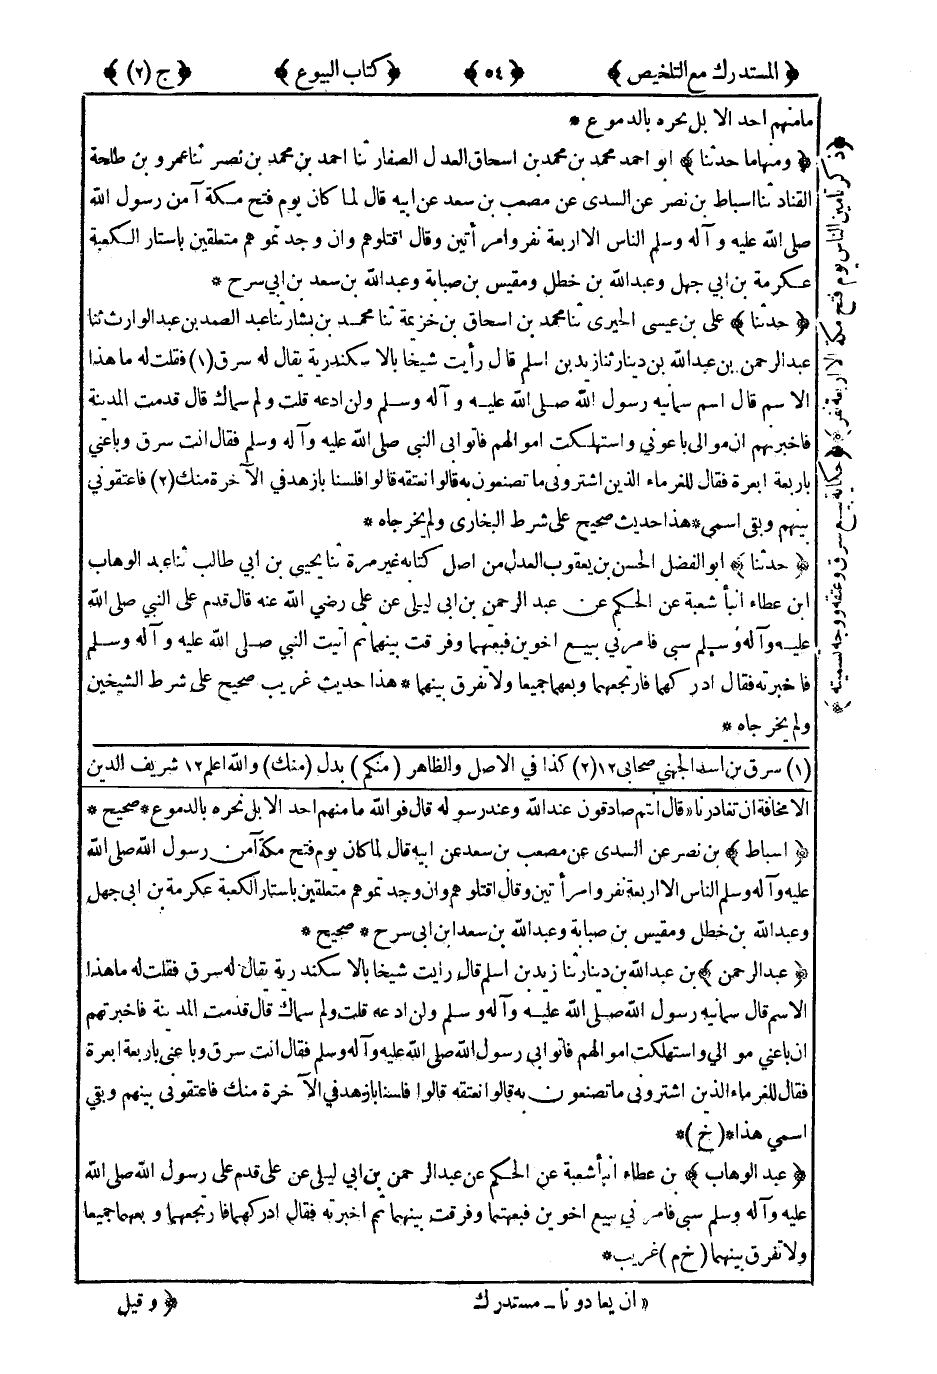 ﴿ المستدرك مع التلخيص ﴾ ﴿ ٥٤ ﴾ ﴿ كتاب البيوع ﴾ ﴿ ج (٢) ﴾
مامنهم احد الا بل نحره بالدموع *
﴿ ومنها ما حدثنا ﴾ ابو احمد محمد بن محمد بن اسحاق العدل الصفار ثنا احمد بن محمد بن نصر ثنا عمرو بن طلحة
القناد ثنا اسباط بن نصر عن السدى عن مصعب بن سعد عن ابيه قال لما كان يوم فتح مكة آمن رسول الله
صلى الله عليه و آله وسلم الناس الا اربعة نفر وامرأتين وقال اقتلوهم وان وجدتموهم متعلقين باستار الكعبة
عكرمة بن ابي جهل وعبدالله بن خطل ومقيس بن صبابة وعبدالله بن سعد بن ابي سرح *
﴿ حدثنا ﴾ على بن عيسى الحيرى ثنا محمد بن اسحاق بن خزيمة ثنا محمد بن بشار ثنا عبد الصمد بن عبد الوارث ثنا
عبدالرحمن بن عبدالله بن دينار ثنا زيد بن اسلم قال رأيت شيخا بالاسكندرية يقال له سرق (١) فقلت له ما هذا
الاسم قال اسم سمانيه رسول الله صلى الله عليه و آله وسلم ولن ادعه قلت ولم سماك قال قدمت المدينة
فاخبرتهم ان موالى باعونى واستهلكت اموالهم فاتوا بى النبى صلى الله عليه وآله وسلم فقال انت سرق وباعني
باربعة ابعرة فقال للغرماء الذين اشترونى ما تصنعون به قالوا نعتقه قالوا فلسنا بازهد في الآخرة منك (٢) فاعتقوني
بينهم وبقى اسمى * هذا حديث صحيح على شرط البخارى ولم يخرجاه *
﴿ حدثنا ﴾ ابو الفضل الحسن بن يعقوب العدل من اصل كتابه غير مرة ثنا يحيى بن ابي طالب ثنا عبد الوهاب
ابن عطاء انبأ شعبة عن الحكم عن عبد الرحمن بن ابى ليلى عن على رضي الله عنه قال قدم على النبي صلى الله
عليه وآله وسلم سبى فامرني ببيع اخوين فبعتهما وفرقت بينهما ثم اتيت النبي صلى الله عليه و آله وسلم
فاخبرته فقال ادركهما فارتجعهما وبعهما جميعا ولا تفرق بينهما * هذا حديث غريب صحيح على شرط الشيخين
ولم يخرجاه *
﴿ ذكر تأمين الناس يوم فتح مكة الا اربعة نفر ﴾
﴿ حكاية بيع سرق وعتقه ووجه تسميته ﴾
(١) سرق بن اسد الجهني صحابى ١٢ (٢) كذا في الاصل والظاهر (منكم) بدل (منك) والله اعلم ١٢ شريف الدين
الا مخافة ان تغادرنا « قال انتم صادقون عند الله وعند رسوله قال فو الله ما منهم احد الا بل نحره بالدموع * صحيح *
﴿ اسباط ﴾ بن نصر عن السدى عن مصعب بن سعد عن ابيه قال لما كان يوم فتح مكة آمن رسول الله صلى الله
عليه وآله وسلم الناس الا اربعة نفر وامرأتين وقال اقتلوهم وان وجدتموهم متعلقين باستار الكعبة عكرمة بن ابى جهل
وعبدالله بن خطل ومقيس بن صبابة وعبدالله بن سعد ابن ابى سرح * صحيح *
﴿ عبدالرحمن ﴾ بن عبدالله بن دينار ثنا زيد بن اسلم قال رايت شيخا بالاسكندرية يقال له سرق فقلت له ماهذا
الاسم قال سمانيه رسول الله صلى الله عليه وآله وسلم ولن ادعه قلت ولم سماك قال قدمت المدينة فاخبرتهم
ان باعني موالي واستهلكت اموالهم فاتوا بى رسول الله صلى الله عليه وآله وسلم فقال انت سرق وباعنى باربعة ابعرة
فقال للغرماء الذين اشترونى ما تصنعون به قالوا نعتقه قالوا فلسنا بازهد في الآخرة منك فاعتقونى بينهم وبقي
اسمي هذا * (خ) *
﴿ عبد الوهاب ﴾ بن عطاء انبأ شعبة عن الحكم عن عبدالرحمن بن ابي ليلى عن على قدم على رسول الله صلى الله
عليه وآله وسلم سبى فامرني ببيع اخوين فبعتهما وفرقت بينهما ثم اخبرته فقال ادركهما فارتجعهما وبعهما جميعا
ولا تفرق بينهما (خ م) غريب *
« ان يعادونا ـ مستدرك ﴿ وقيل